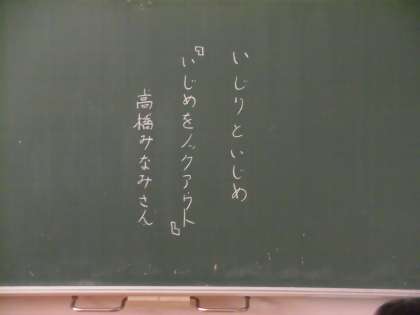 いじりといじめ
『いじめをノックアウト』
高橋みなみさん